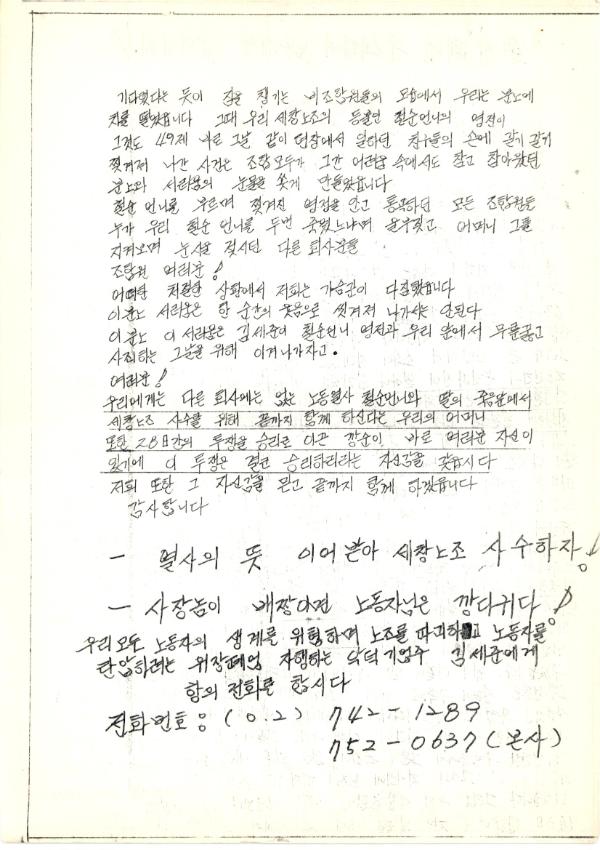 기다렸다는 듯이 짐을 챙기는 비조합원들의 모습에서 우리는 분노에
치를 떨었읍니다 그때 우리 세창노조의 등불인 철순언니의 영전이
그것도 49제 바로 그날 같이 현장에서 일하던 친구들의 손에 갈기 갈기
찢겨져 나간 사건은 조합원모두가 그간 어려움 속에서도 참고 참아왔던
분노와 서러움의 눈물을 쏟게 만들었읍니다
철순 언니를 부르며 찢겨진 영정을 안고 통곡하던 모든 조합원들
누가 우리 철순 언니를 두번 죽였느냐며 울부짖고 어머니 그를
지켜보며 눈시울 적시던 다른 회사분들
조합원 여러분!
어떠한 처절한 상황에서 저희는 가슴깊이 다짐했읍니다
이분노 서러움은 한 순간의 웃음으로 씻겨져 나가서는 안된다
이분노 이 서러움은 김세준이 철순언니 영전과 우리 앞에서 무릎꿇고
사죄하는 그날을 위해 이겨나가자고.
여러분!
우리에게는 다른 회사에는 없는 노동열사 철순언니와 딸의 죽음앞에서
세창노조 사수를 위해 끝까지 함께 하신다는 우리의 어머니
또한 28일간의 투쟁을 승리로 이끈 깡순이 바로 여러분 자신이
있기에 이 투쟁은 결코 승리하리라는 자신감을 갖읍시다
저희 또한 그 자신감을 믿고 끝까지 함께 하겠읍니다
감사합니다
— 열사의 뜻 이어받아 세창노조 사수하자!
— 사장놈이 배짱이면 노동자님은 깡다귀다!
우리모두 노동자의 생계를 위협하며 노조를 파괴하고 노동자를
탄압하려는 위장폐업 자행하는 악덕기업주 김세준에게
항의 전화를 합시다
전화번호: (0.2) 742-1289
752-0637(본사)